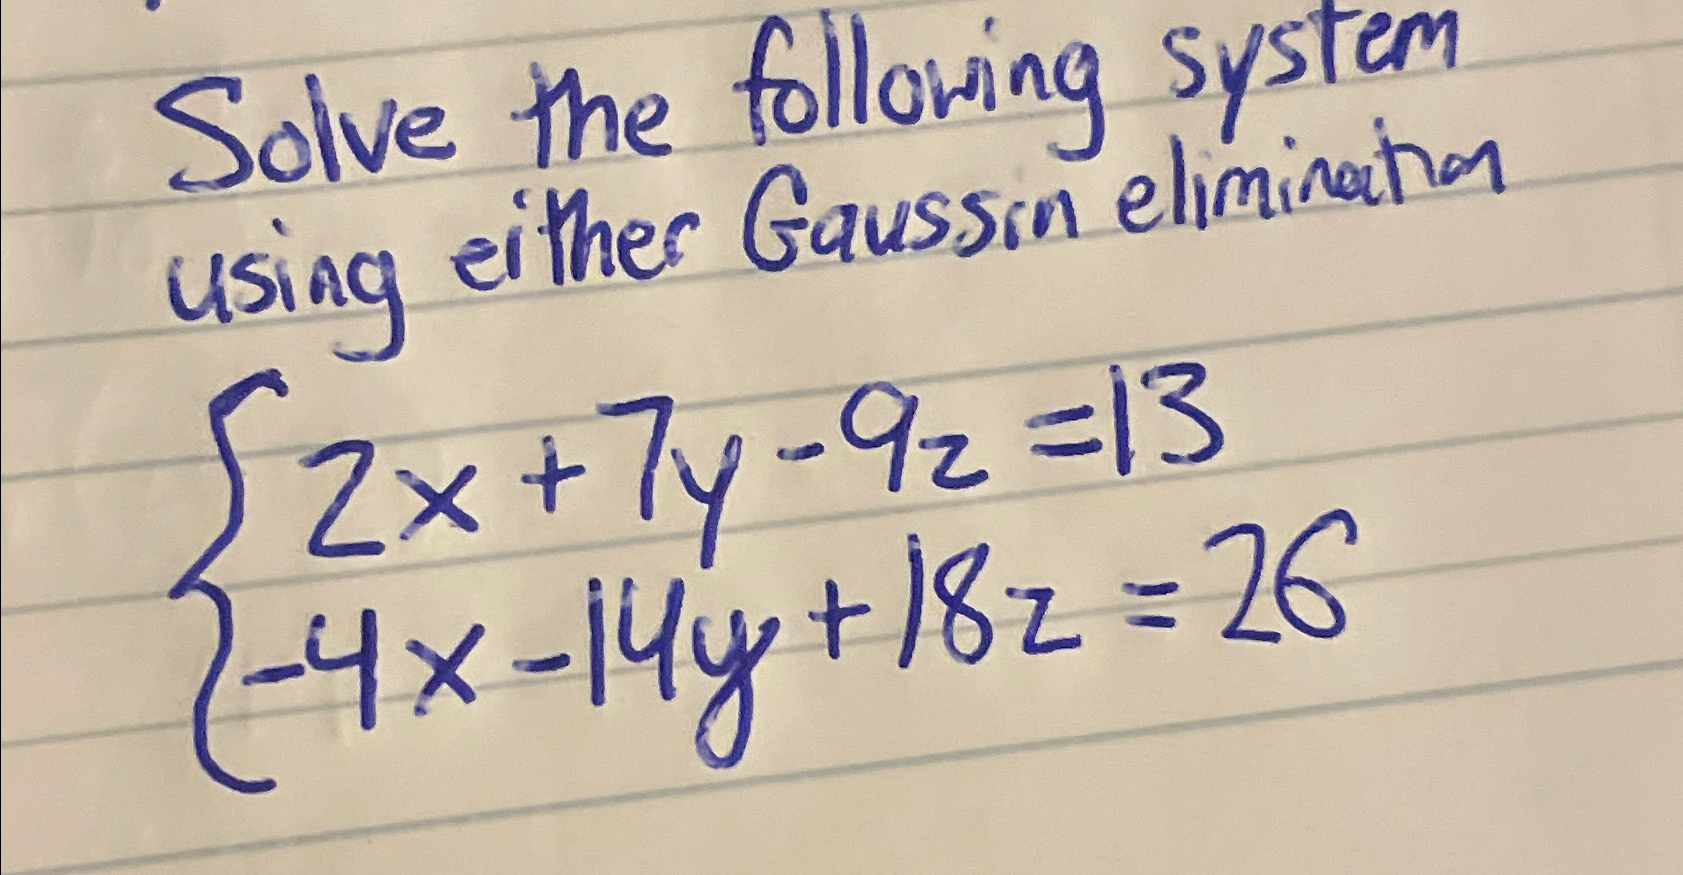 Solve the following system
using either Gaussin elimination
2x + 7y - 9z = 13
-4x - 14y + 18z = 26